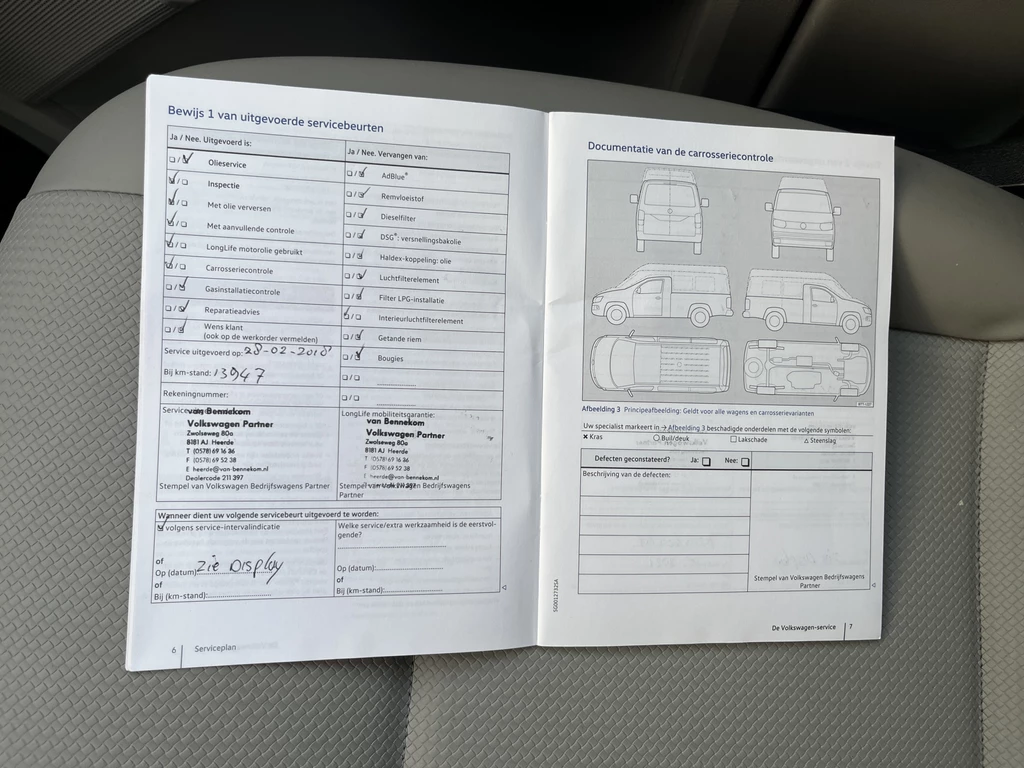 Bewijs 1 van uitgevoerde servicebeurten
Ja / Nee. Uitgevoerd is:
Olieservice
Inspectie
Met olie verversen
Met aanvullende controle
LongLife motorolie gebruikt
Carrosseriecontrole
Gasinstallatiecontrole
Reparatieadvies
Wens klant
(ook op de werkorder vermelden)
Service uitgevoerd op: 28-02-2018
Bij km-stand: 13947
Rekeningnummer:
Ja / Nee. Vervangen van:
AdBlue®
Remvloeistof
Dieselfilter
DSG®: versnellingsbakolie
Haldex-koppeling: olie
Luchtfilterelement
Filter LPG-installatie
Interieurluchtfilterelement
Getande riem
Bougies
Service
van Bennekom
Volkswagen Partner
Zwolseweg 80a
8181 AJ Heerde
T (0578) 69 16 36
F (0578) 69 52 38
E heerde@van-bennekom.nl
Dealercode 211 397
Stempel van Volkswagen Bedrijfswagens Partner
LongLife mobiliteitsgarantie:
van Bennekom
Volkswagen Partner
Zwolseweg 80a
8181 AJ Heerde
T (0578) 69 16 36
F (0578) 69 52 38
E heerde@van-bennekom.nl
Stempel van Volkswagen Bedrijfswagens
Partner
Wanneer dient uw volgende servicebeurt uitgevoerd te worden:
volgens service-intervalindicatie
of
Op (datum): zie Display
of
Bij (km-stand):
Welke service/extra werkzaamheid is de eerstvol-
gende?
Op (datum):
of
Bij (km-stand):
6 Serviceplan
Documentatie van de carrosseriecontrole
Afbeelding 3 Principeafbeelding: Geldt voor alle wagens en carrosserievarianten
Uw specialist markeert in → Afbeelding 3 beschadigde onderdelen met de volgende symbolen:
× Kras ○ Buil/deuk □ Lakschade △ Steenslag
Defecten geconstateerd? Ja: □ Nee: □
Beschrijving van de defecten:
Stempel van Volkswagen Bedrijfswagens
Partner
SG00127325A
De Volkswagen-service 7